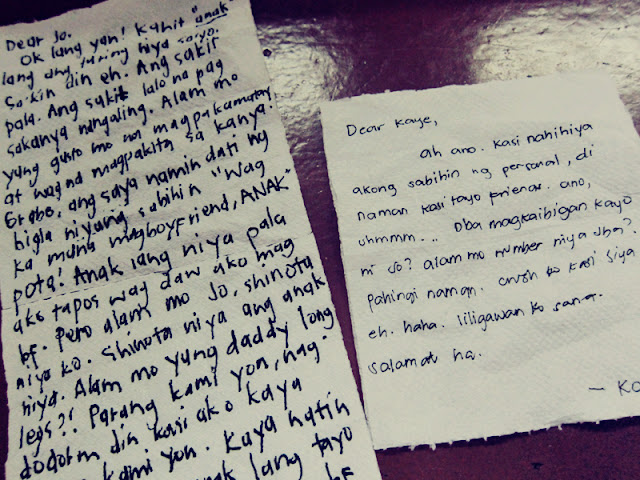 Dear Jo,
Ok lang yan! Kahit "anak"
lang ang turing niya sa'yo.
Sakin din eh. Ang sakit
pala. Ang sakit lalo na pag
sakanya nanggaling. Alam mo
yung gusto mo na magpakamatay
at wag na magpakita sa kanya!
Grabe, ang saya namin dati ng
bigla niyang sabihin "Wag
ka muna magboyfriend, ANAK"
pota! Anak lang niya pala
ako tapos wag daw ako mag
bf. Pero alam mo Jo, shinota
niya ko. Shinota niya ang anak
niya. Alam mo yung daddy long
legs?! Parang kami yon, nag.
dodorm din kasi ako kaya
kami yon. Kaya natin
anak lang tayo
bf
Dear Kaye,
ah ano. kasi nahihiya
akong sabihin ng personal, di
naman kasi tayo friends. ano,
uhmmm... Dba magkaibigan kayo
ni Jo? alam mo number niya dba?
pahingi naman. crush ko kasi siya
eh. haha. liligawan ko sana.
salamat ha.